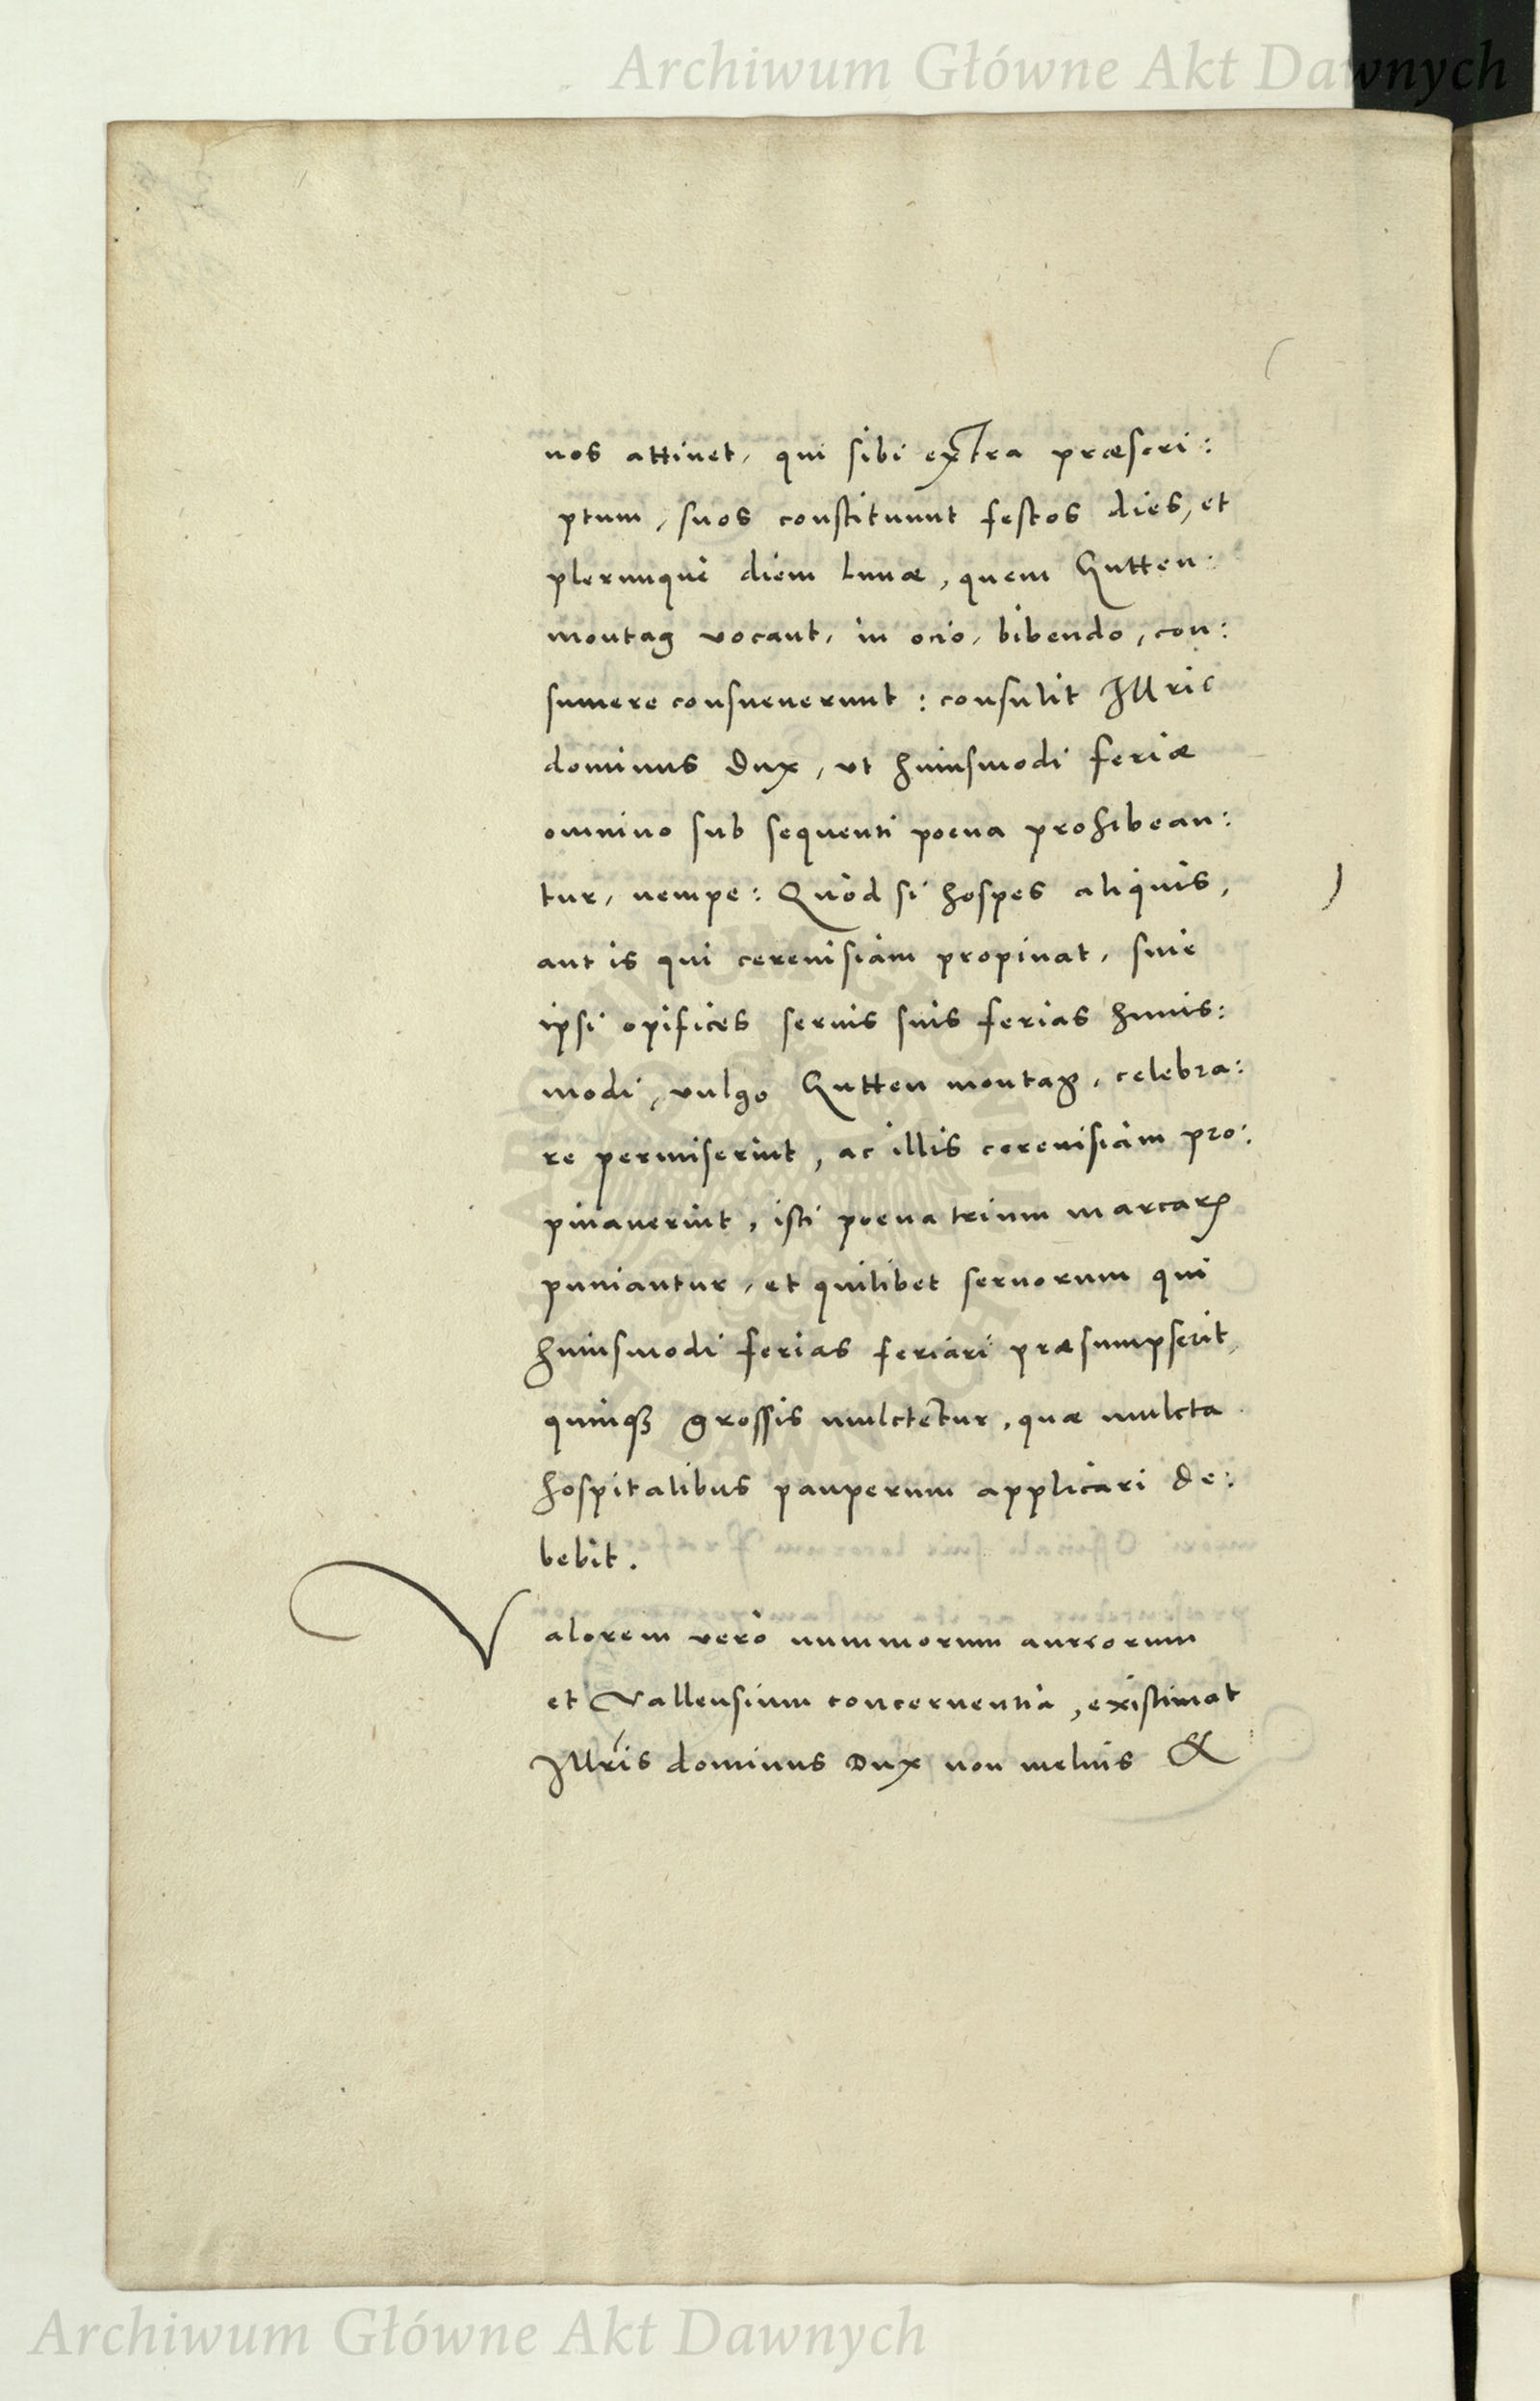 Archiwum Główne Akt Dawnych
nos attinet, qui sibi extra præscri:
ptum, suos constituunt festos dies, et
plerunque diem Lunæ, quem Gutten:
montag vocant, in ocio, bibendo, con:
sumere consueuerunt : consulit Illris
dominus Dux, vt huiusmodi feriæ
omnino sub sequenti poena prohibean:
tur, nempe: Quòd si hospes aliquis,
aut is qui cereuisiam propinat, siue
ipsi opifices seruis suis ferias huius:
modi, vulgo Gutten montag, celebra:
re permiserint, ac illis cereuisiam pro:
pinauerint, isti poena trium marcarꝝ
puniantur, et quilibet seruorum qui
huiusmodi ferias feriari præsumpserit,
quinqꝫ grossis mulctetur, quæ mulcta
hospitalibus pauperum applicari de:
bebit.
Valorem verò nummorum aureorum
et Vallensium concernentia, existimat
Illris dominus Dux non melius &
Archiwum Główne Akt Dawnych